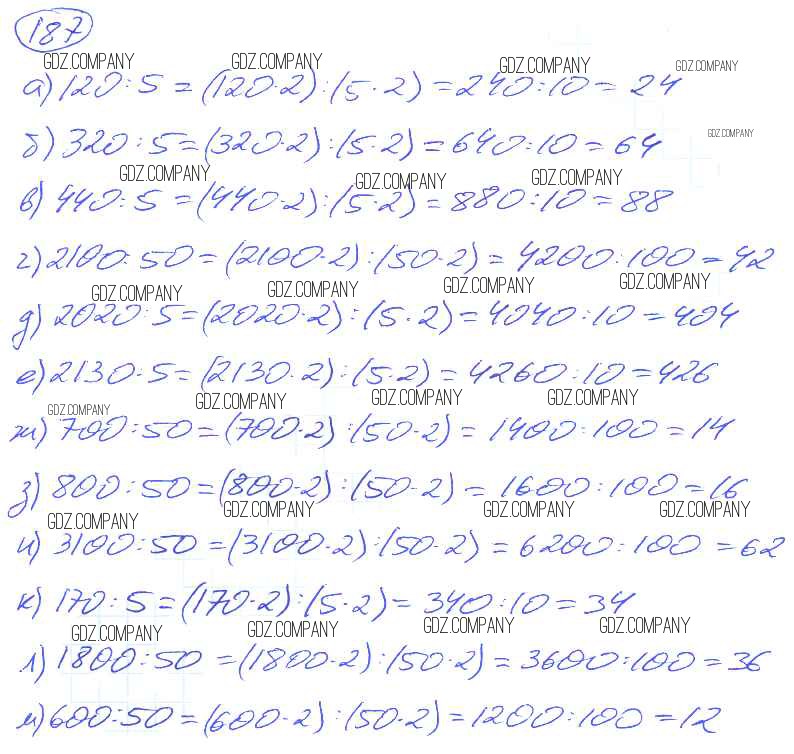 187
GDZ.COMPANY GDZ.COMPANY GDZ.COMPANY GDZ.COMPANY
а) 120 : 5 = (120·2) : (5·2) = 240 : 10 = 24
GDZ.COMPANY
б) 320 : 5 = (320·2) : (5·2) = 640 : 10 = 64
GDZ.COMPANY GDZ.COMPANY GDZ.COMPANY
в) 440 : 5 = (440·2) : (5·2) = 880 : 10 = 88
г) 2100 : 50 = (2100·2) : (50·2) = 4200 : 100 = 42
GDZ.COMPANY GDZ.COMPANY GDZ.COMPANY GDZ.COMPANY
д) 2020 : 5 = (2020·2) : (5·2) = 4040 : 10 = 404
е) 2130·5 = (2130·2) : (5·2) = 4260 : 10 = 426
GDZ.COMPANY GDZ.COMPANY GDZ.COMPANY GDZ.COMPANY
ж) 700 : 50 = (700·2) : (50·2) = 1400 : 100 = 14
з) 800 : 50 = (800·2) : (50·2) = 1600 : 100 = 16
GDZ.COMPANY GDZ.COMPANY GDZ.COMPANY GDZ.COMPANY
и) 3100 : 50 = (3100·2) : (50·2) = 6200 : 100 = 62
к) 170 : 5 = (170·2) : (5·2) = 340 : 10 = 34
GDZ.COMPANY GDZ.COMPANY GDZ.COMPANY GDZ.COMPANY
л) 1800 : 50 = (1800·2) : (50·2) = 3600 : 100 = 36
м) 600 : 50 = (600·2) : (50·2) = 1200 : 100 = 12